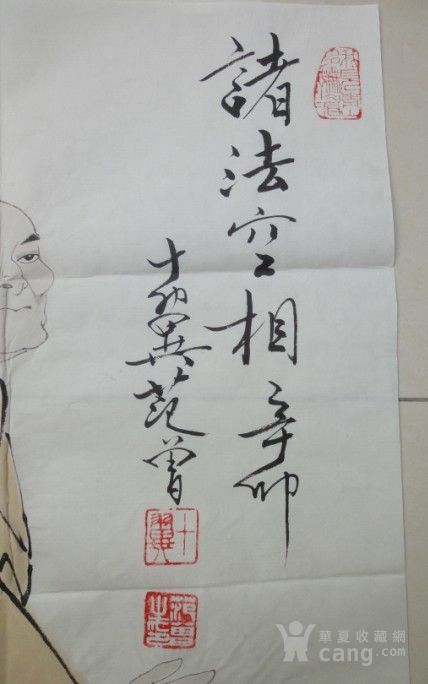 諸法空相辛卯
十翼范曾
十翼
華夏收藏網
cang.com